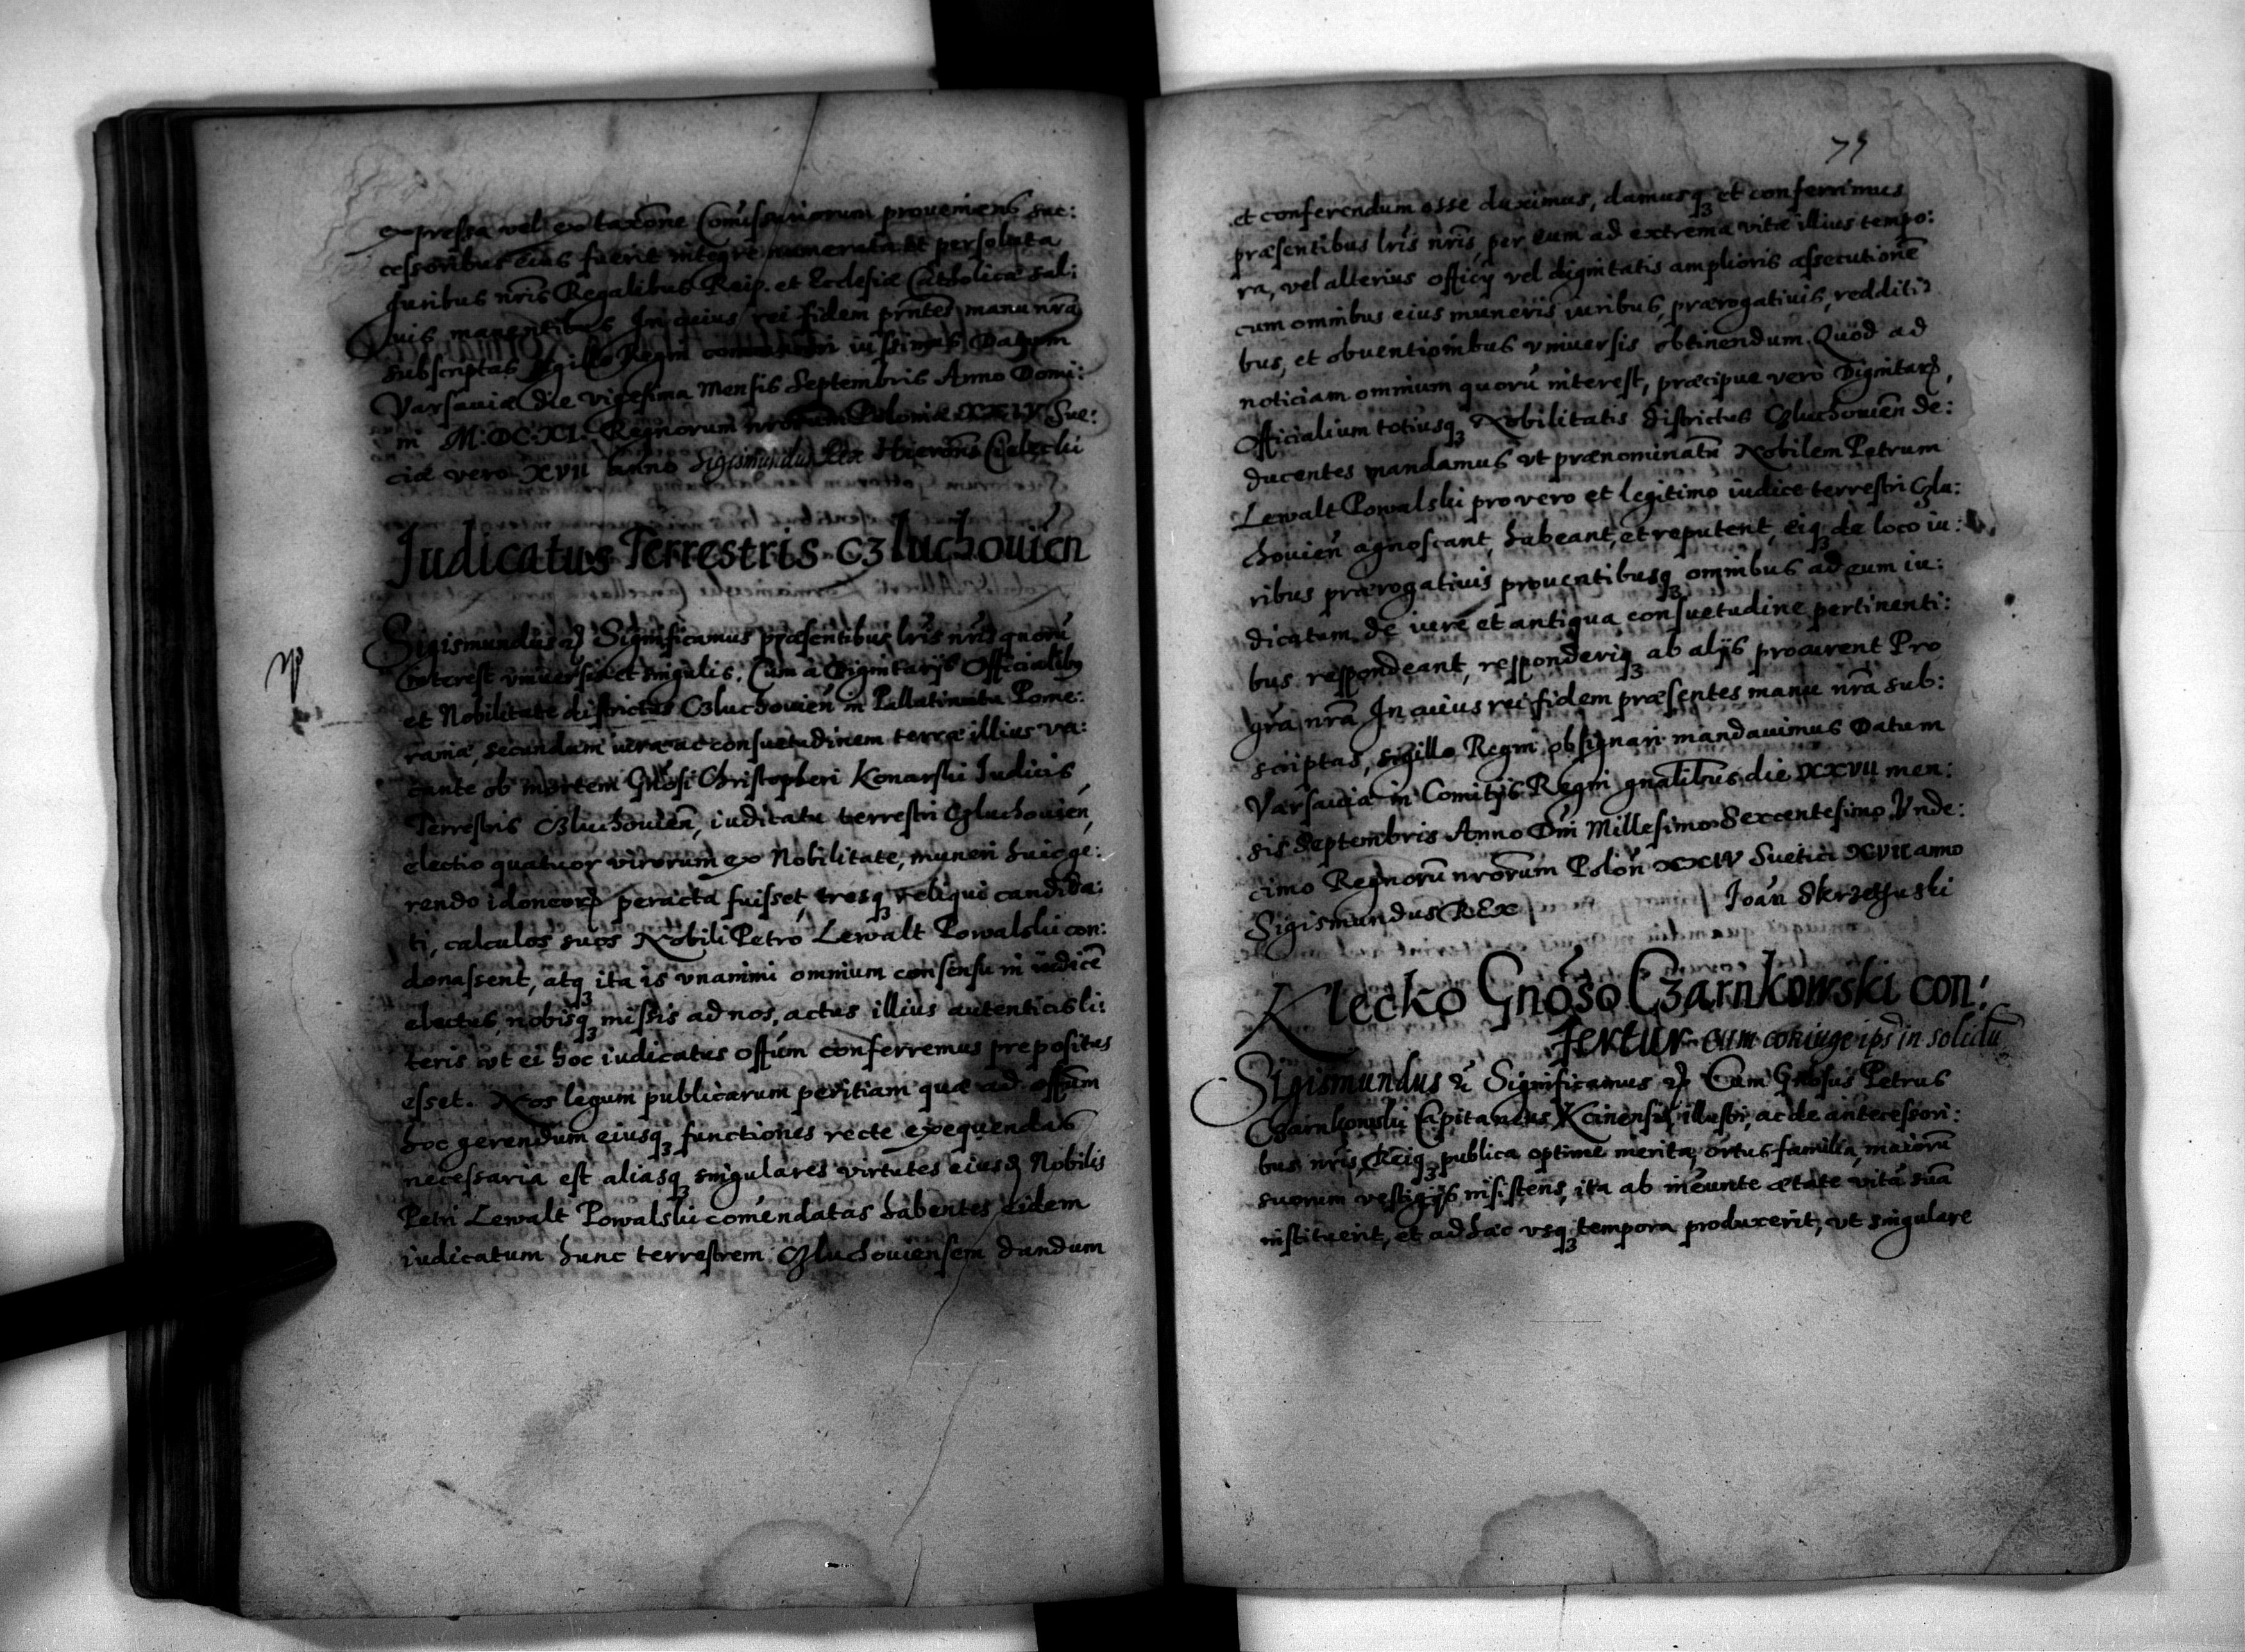 expressa vel ex taxõne Comissariorum proveniens suc:
cessoribus eius fuerit integre numerata et persoluta
Iuribus nr̃is Regalibus Reip. et Ecclesiæ Catholicæ sal:
vis manentibus In cuius rei fidem pr̃ntes manu nr̃a
subscriptas sigillo Regni iussimus Datum
Varsaviæ die vigesima Mensis Septembris Anno Domi:
ni M.DC.XI. Regnorum nrorum Poloniæ XXIV Sue:
ciæ vero XVII anno Sigismundus Rex
Iudicatus Terrestris Czluchovień
Sigismundus Significamus præsentibus lr̃is nr̃is quorũ
interest universis et singulis, Cum a Dignitarijs Officialibq
et Nobilitate districtus Czluchovień in Pallatinatu Pome:
raniæ, secundum iura ac consuetudinem terræ illius va:
cante ob mortem Gñosi Christopheri Konarski Iudicis
Terrestris Czluchovień, iudicatu terrestri Czluchovień,
electio quatuor virorum ex Nobilitate, muneri huic ge:
rendo idoneor peracta fuisset, tresq reliqui candida:
ti, calculos suos Nobili Petro Lewalt Powalski con:
donassent, atq ita is vnanimi omnium consensu in iudicẽ
electus, nobisq missis ad nos, actus illius autenticis li:
teris vt ei hoc iudicatus offũm conferremus prepositus
esset. Nos legum publicarum peritiam quæ ad offũm
hoc gerendum eiusq functiones recte exequendas
necessaria est aliasq singulares virtutes eiusd Nobilis
Petri Lewalt Powalski comendatas habentes eidem
iudicatum hunc terrestrem Czluchoviensem dandum
79
et conferendum esse duximus, damusq et conferrimus
præsentibus lr̃is nr̃is, per eum ad extrema vitæ illius tempo:
ra, vel alterius officij vel dignitatis amplioris assecutionẽ
cum omnibus eius muneris iuribus, prærogativis, redditi
bus, et obventionibus vniversis obtinendum. Quod ad
noticiam omnium quorũ interest, præcipue vero Dignitar,
Officialium totiusq Nobilitatis districtus Czluchovień de:
ducentes mandamus vt prænominatũ Nobilem Petrum
Lewalt Powalski pro vero et legitimo iudice terrestri Czlu:
chovień agnoscant, habeant, et reputent, eiq de loco iu:
ribus prærogativis proventibusq omnibus ad eum iu:
dicatum de iure et antiqua consuetudine pertinenti:
bus respondeant, responderiq ab alijs procurent Pro
gr̃a nr̃a In cuius rei fidem præsentes manu nr̃a sub:
scriptas, sigillo Regni obsignari mandavimus Datum
Varsaviæ in Comitijs Regni gñalibus die XXVII men:
sis Septembris Anno Dñi Millesimo Sexcentesimo Vnde:
cimo Regnorũ nrõrum Poloń XXIV Suetici XVII anno
Sigismundus Rex Ioań Skrzetuski
Klecko Gnõso Czarnkowski con:
fertur cum coniuge ips in solidũ
Sigismundus &c Significamus Cum Gñosus Petrus
Czarnkowski Capitaneus Kcinensis, illustri, ac de antecessori:
bus nr̃is, Reiq publica optime merita, ortus familia, maiorũ
suorum vestigijs insistens, ita ab ineunte ætate vitã suã
instituerit, et ad hæc vsq tempora produxerit, vt singulare